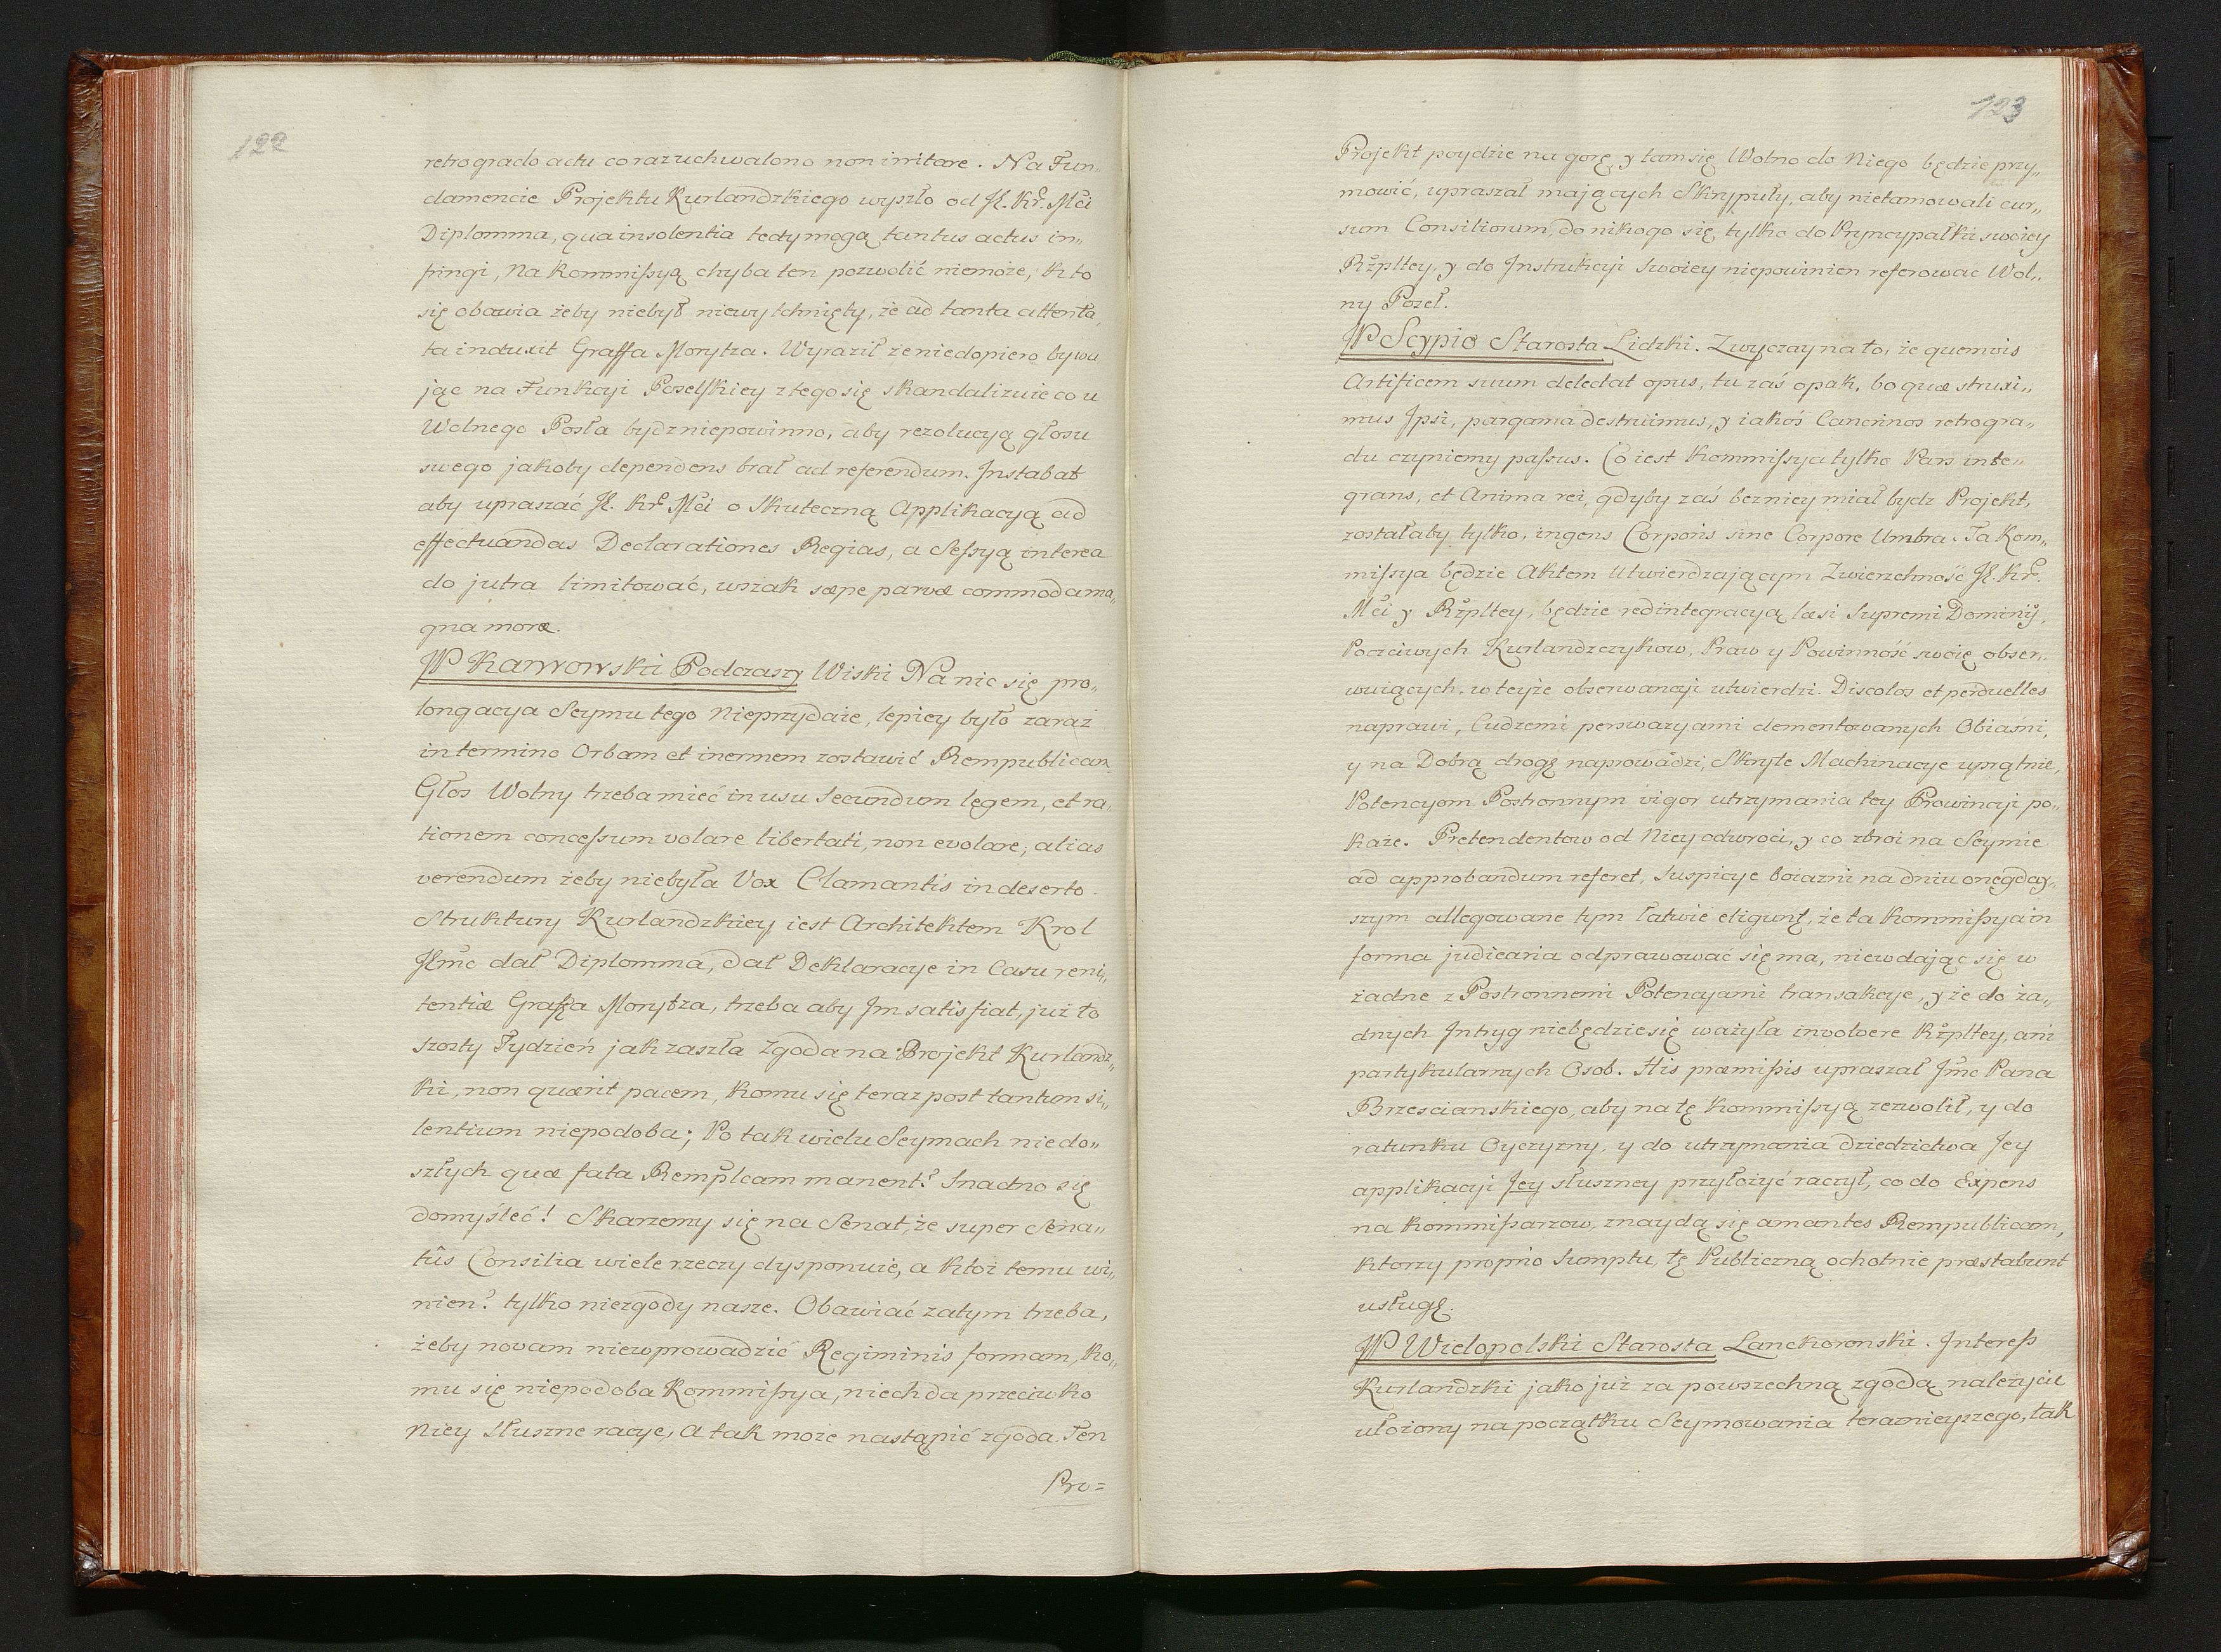 122
retrogrado actu co raz uchwalono non irritare. Na Fun„
damencie Projektu Kurlandzkiego wyszło od JK. Kr. Mci
Diplomma, qua insolentia tedy mogą tantus actus in„
fringi, Na Kommissyą chyba ten pozwolić niemoże, kto
się obawia żeby niebył niewytchnięty, że ad tanta attenta„
ta induxit Graffa Morytza. Wyraził że niedopiero bywa
jąc na Funkcyi Poselskiey z tego się skandalizuie co u
Wolnego Posła bydz niepowinno, aby rezolucyą głosu
swego jakoby dependens brał ad referendum. Instabat
aby upraszać JK. Kr Mci o Skuteczną Applikacyą ad
effectuandas Declarationes Regias, a Sessyą interea
do jutra limitować, wszak sæpe parvæ commoda ma„
gna moræ.
JP Karwowski Podczaszy Wiski Na nic się pro„
longacya Seymu tego Nieprzydaie, lepiey było zaraz
in termino Orbam et inermem zostawić Rempublicam
Głos Wolny trzeba mieć in usu secundum legem, et ra„
tionem concessum volare libertati, non evolare; alias
verendum żeby niebyła Vox Clamantis in deserto.
Struktury Kurlandzkiey iest Architektem Krol
JKmc dał Diplomma, dał Deklaracye in Casu reni„
tentiæ Graffa Morytza, trzeba aby Im satisfiat, już to
szosty Tydzień jak zaszła Zgoda na Projekt Kurlandz„
ki, non quærit pacem, komu się teraz post tantum si„
lentium niepodoba; Po tak wielu Seymach niedo„
szłych quæ fata Remplcam manent? Snadno się
domyśleć! Skarzemy się na Senat, że super Sena„
tûs Consilia wiele rzeczy dysponuie, a ktoż temu wi„
nien? tylko niezgody nasze. Obawiać zatym trzeba,
żeby novam niewprowadzić Regiminis formam, Ko„
mu się niepodoba Kommissya, niech da przeciwko
Niey Słuszne racye, A tak może nastąpić zgoda. Ten
Pro=
123
Projekt poydzie na gorę, y tam się Wolno do Niego będzie przy„
mowić, upraszał mających Skrypuły, aby nietamowali cur„
sum Consiliorum, do nikogo się tylko do Pryncypałki swoiey
Rzpltey, y do Instrukcyi Swoiey niepowinien referować Wol„
ny Poseł.
JP Scypio Starosta Lidzki. Zwyczayna to, że quemvis
Artificem suum delectat opus, tu zaś opak, bo quæ struxi„
mus Ipsi, pargama destruimus, y iakoś Cancrinos retrogra„
du czyniemy passus. Co iest Kommissya tylko Pars inte„
grans, et Anima rei, gdyby zaś bez niey miał bydz Projekt,
zostałaby tylko, ingens Corporis sine Corpore Umbra. Ta Kom„
missya będzie Aktem Utwierdzającym Zwierzchność JK. Kr.
Mci y Rzpltey, będzie redintegracyą læsi Supremi Dominij,
Poczciwych Kurlandczykow, Praw y Powinność swoię obser„
wuiących, w teyże obserwancyi utwierdzi. Discolos et perduelles
naprawi, Cudzemi perswazyami dementowanych Obiaśni,
y na Dobrą drogę naprowadzi, Skryte Machinacye uprątnie,
Potencyom Postronnym vigor utrzymania tey Prowincyi po„
każe. Pretendentow od Niey odwroci, y co zbroi na Seymie
ad approbandum referet, Suspicye boiazni na dniu onegday„
szym allegowane tym łatwie eligunt, że ta Kommissya in
forma judiciaria odprawować się ma, niewdając się w
żadne z Postronnemi Potencyami transakcye, y że do ża„
dnych Intryg niebędzie się ważyła involvere Rzpltey, ani
partykularnych Osob. His præmissis upraszał Jmc Pana
Brzescianskiego, aby na tę Kommissyą zezwolił, y do
ratunku Oyczyzny, y do utrzymania dziedzictwa Jey
applikacyi Jey słuszney przyłożyć raczył, co do Expens
na Kommissarzow, znaydą się amantes Rempublicam,
ktorzy proprio Sumptu, tę Publiczną ochotnie præstabunt
usługę.
JP Wielopolski Starosta Lanckoronski. Interess
Kurlandzki jako już za powszechną zgodą należycie
ułożony na początku Seymowania teraznieyszego, tak